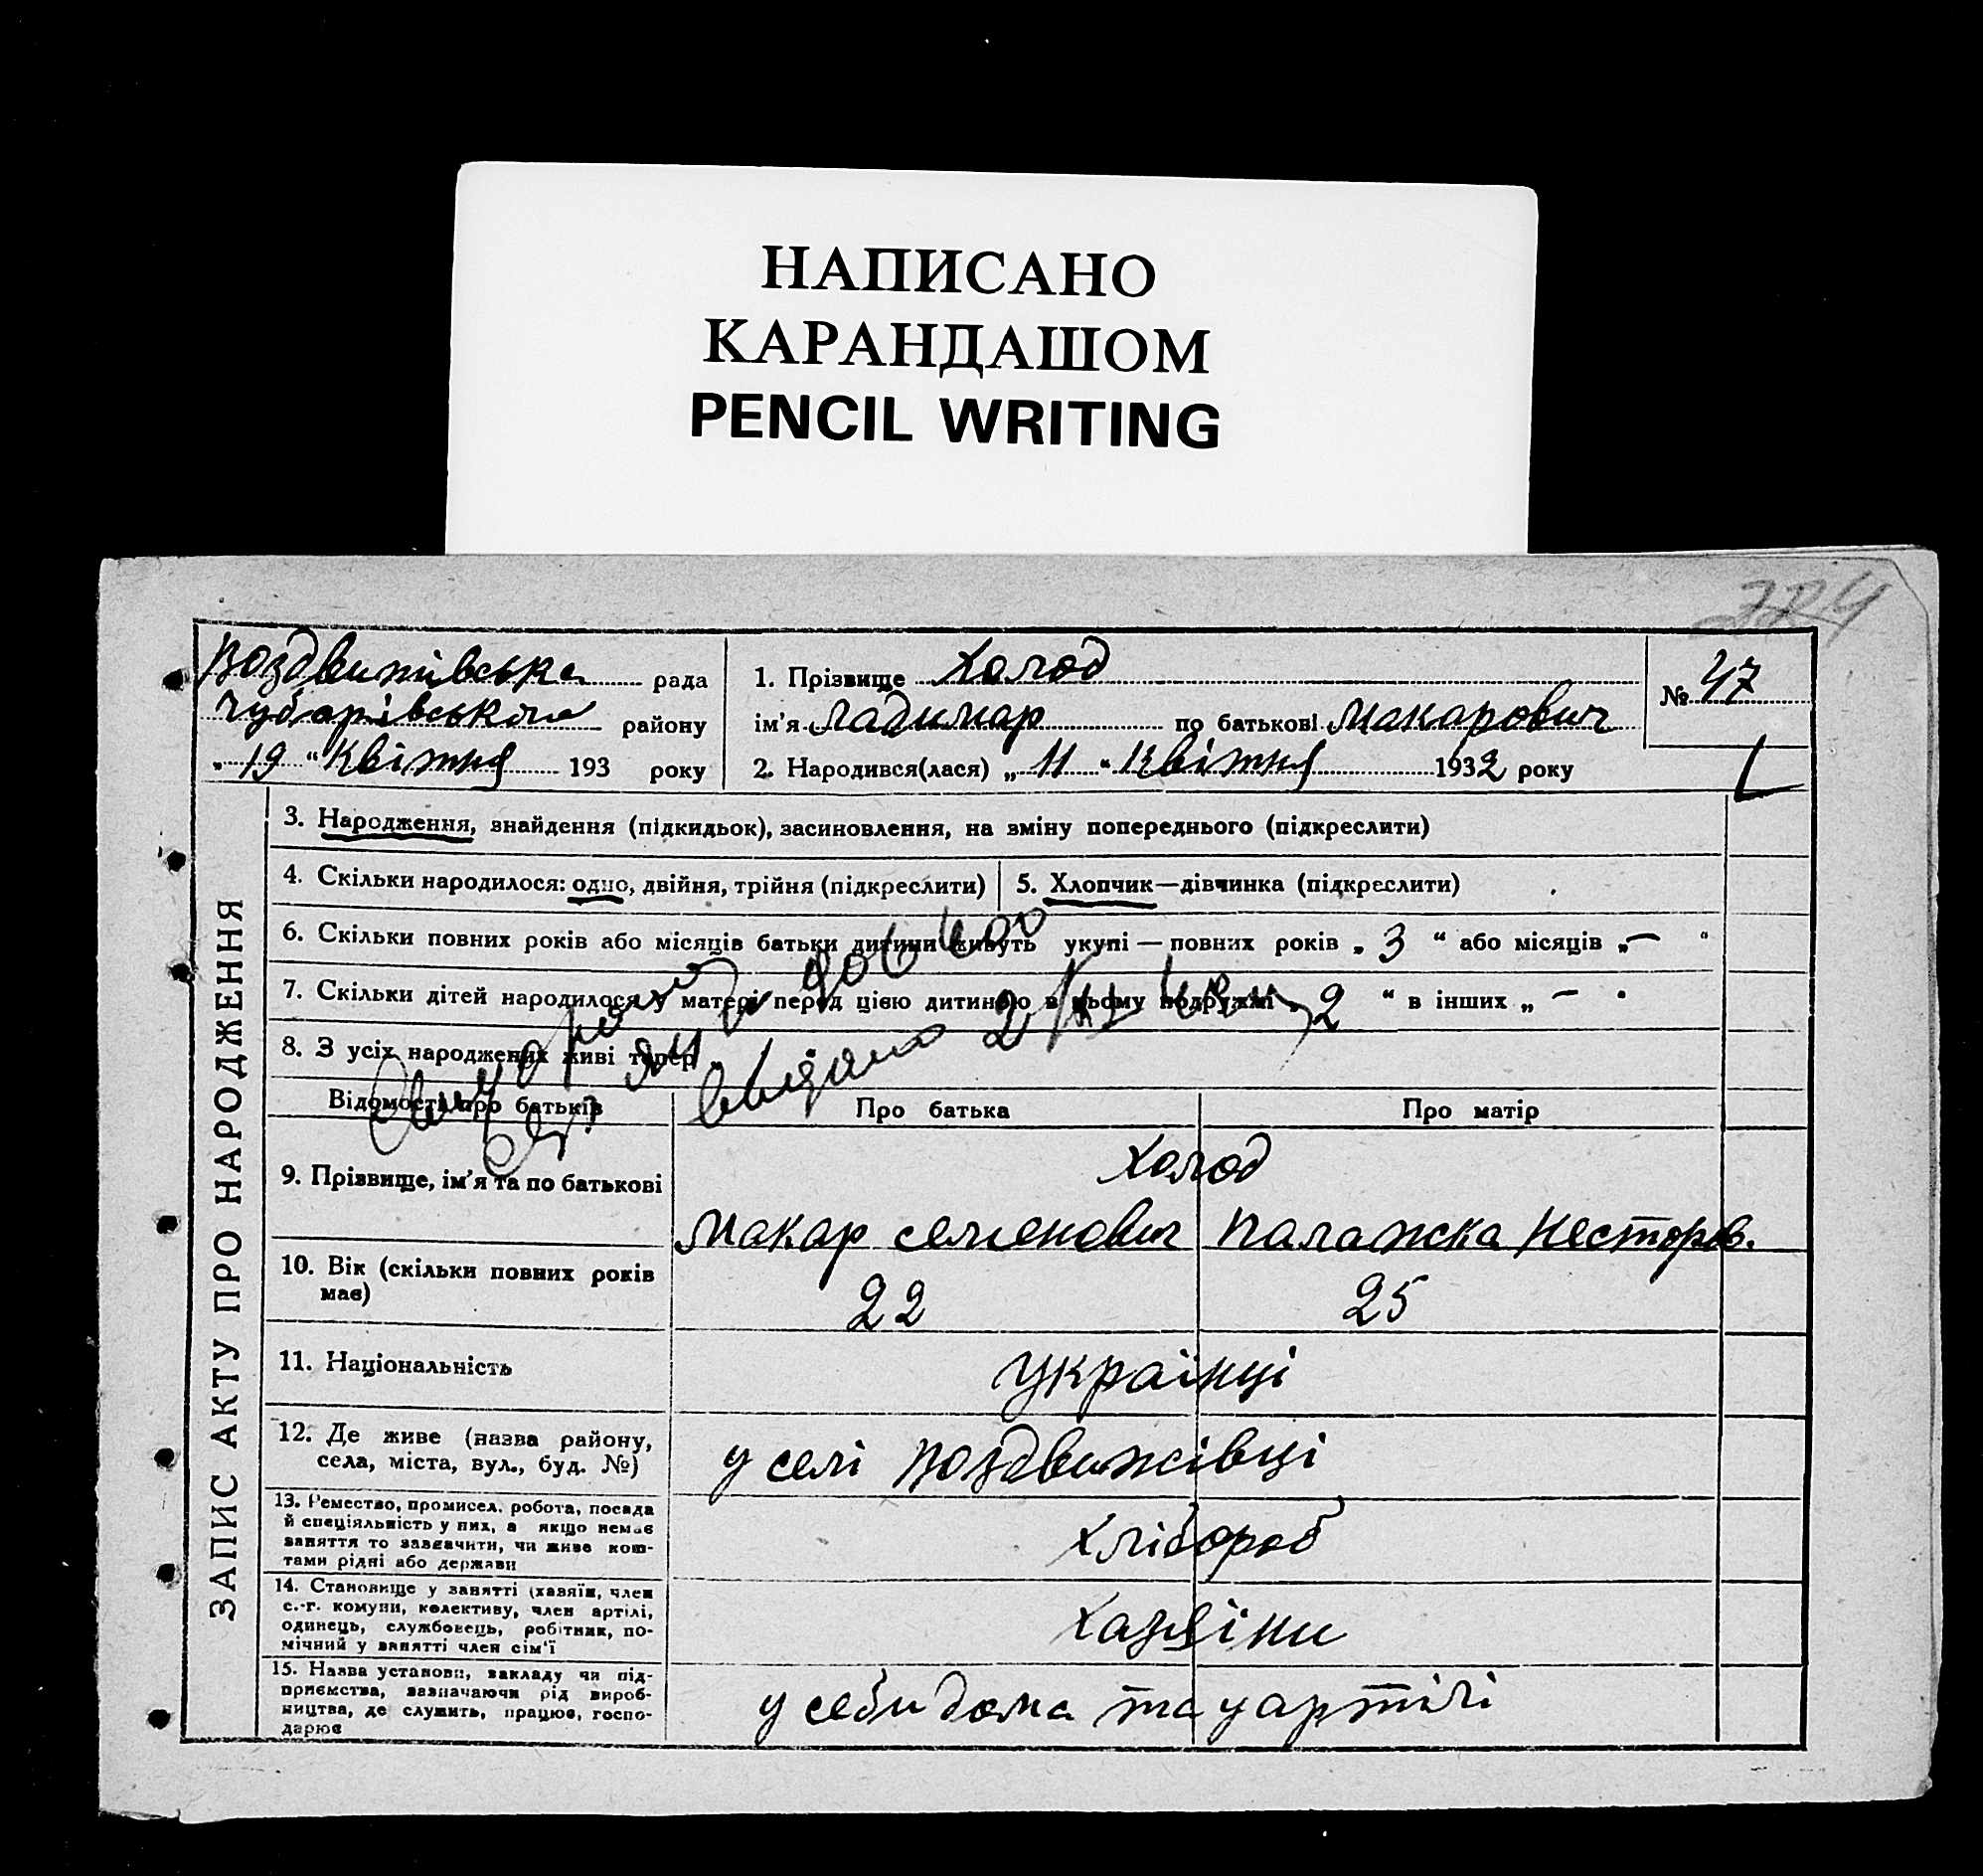 НАПИСАНО
КАРАНДАШОМ
PENCIL WRITING
324
Воздвижівська рада
Чубарівського району
„ 19 “ Квітня 193 року
1. Прізвище Холод
ім'я Ладимар по батькові Макарович
2. Народився(лася) „ 11 “ Квітня 1932 року
№ 47
ЗАПИС АКТУ ПРО НАРОДЖЕННЯ
3. Народження, знайдення (підкидьок), засиновлення, на зміну попереднього (підкреслити)
4. Скільки народилося: одно, двійня, трійня (підкреслити)
5. Хлопчик—дівчинка (підкреслити)
6. Скільки повних років або місяців батьки дитини живуть укупі — повних років „ 3 “ або місяців „ — “
7. Скільки дітей народилося у матері перед цією дитиною в цьому подружжі „ 2 “ в інших „ — “
8. З усіх народжених живі тепер
Відомості про батьків
Про батька
Про матір
9. Прізвище, ім'я та по батькові
Холод
Макар семенович
Палажска Несторов.
10. Вік (скільки повних років
має)
22
25
11. Національність
українці
12. Де живе (назва району,
села, міста, вул., буд. №)
у селі Воздвижівці
13. Ремество, промисел, робота, посада
й спеціяльність у них, а якщо немає
заняття то зазначити, чи живе кош-
тами рідні або держави
Хлібороб
14. Становище у занятті (хазяїн, член
с.-г. комуни, колективу, член артілі,
одинець, службовець, робітник, по-
мічний у занятті член сім'ї
Хазяїни
15. Назва установи, закладу чи під-
приємства, зазначаючи рід вироб-
ництва, де служить, працює, госпо-
дарює
у себи дома та у артілі